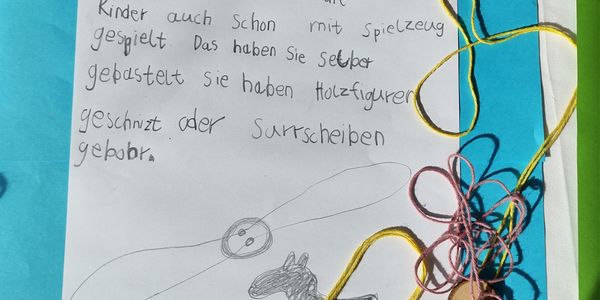 Kinder auch schon mit Spielzeug
gespielt. Das haben Sie selber
gebastelt Sie haben Holzfiguren
geschnizt oder Surrscheiben
gebohr.